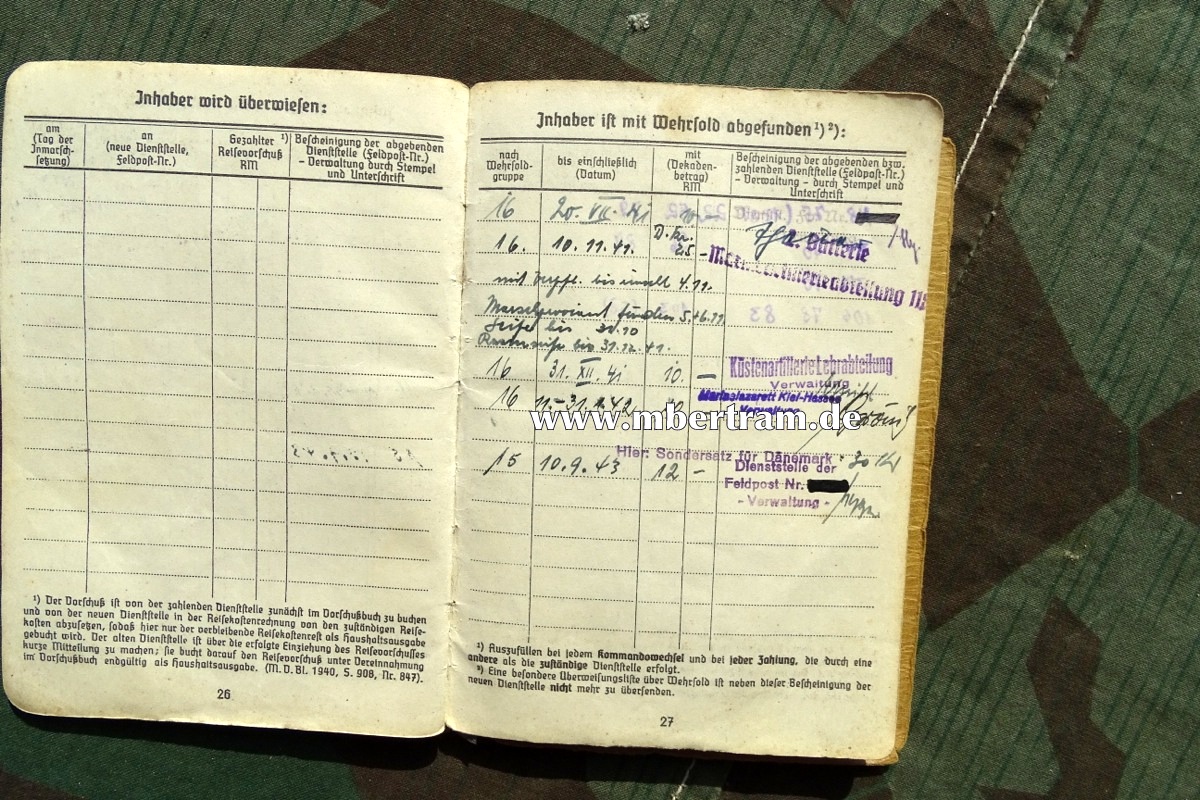 Inhaber wird überwiesen:
am
(Tag der
Inmarsch-
setzung)
an
(neue Dienststelle,
Feldpost-Nr.)
Gezahlter ¹)
Reisevorschuß
RM
Bescheinigung der abgebenden
Dienststelle (Feldpost-Nr.)
- Verwaltung durch Stempel
und Unterschrift
¹) Der Vorschuß ist von der zahlenden Dienststelle zunächst im Vorschußbuch zu buchen
und von der neuen Dienststelle in der Reisekostenrechnung von den zuständigen Reise-
kosten abzusetzen, sodaß hier nur der verbleibende Reisekostenrest als Haushaltsausgabe
gebucht wird. Der alten Dienststelle ist über die erfolgte Einziehung des Reisevorschusses
kurze Mitteilung zu machen; sie bucht darauf den Reisevorschuß unter Vereinnahmung
im Vorschußbuch endgültig als Haushaltsausgabe. (M. D. Bl. 1940, S. 908, Nr. 847).
26
Inhaber ist mit Wehrsold abgefunden ¹) ²):
nach
Wehrsold-
gruppe
bis einschließlich
(Datum)
mit
(Dekaden-
betrag)
RM
Bescheinigung der abgebenden bzw.
zahlenden Dienststelle (Feldpost-Nr.)
- Verwaltung - durch Stempel und
Unterschrift
16 20. VII. 41 10 -
D. Kr.
16. 10. 11. 41. 25 - Batterie
mit Verpfl. bis einschl. 4.11.
Marschproviant für den 5.+6.11
Seife bis 31.10
bis 31.12.41.
16 31. XII. 41 10. - Küstenartillerie Lehrabteilung
Verwaltung
16 11.-31.1.42 Marinelazarett Kiel-Hassee
Verwaltung
www.mbertram.de
Hier: Sondersatz für Dänemark: 30 Kr
15 10.9.43 12 - Dienststelle der
Feldpost Nr.
- Verwaltung -
¹) Auszufüllen bei jedem Kommandowechsel und bei jeder Zahlung, die durch eine
andere als die zuständige Dienststelle erfolgt.
²) Eine besondere Überweisungsliste über Wehrsold ist neben dieser Bescheinigung der
neuen Dienststelle nicht mehr zu übersenden.
27